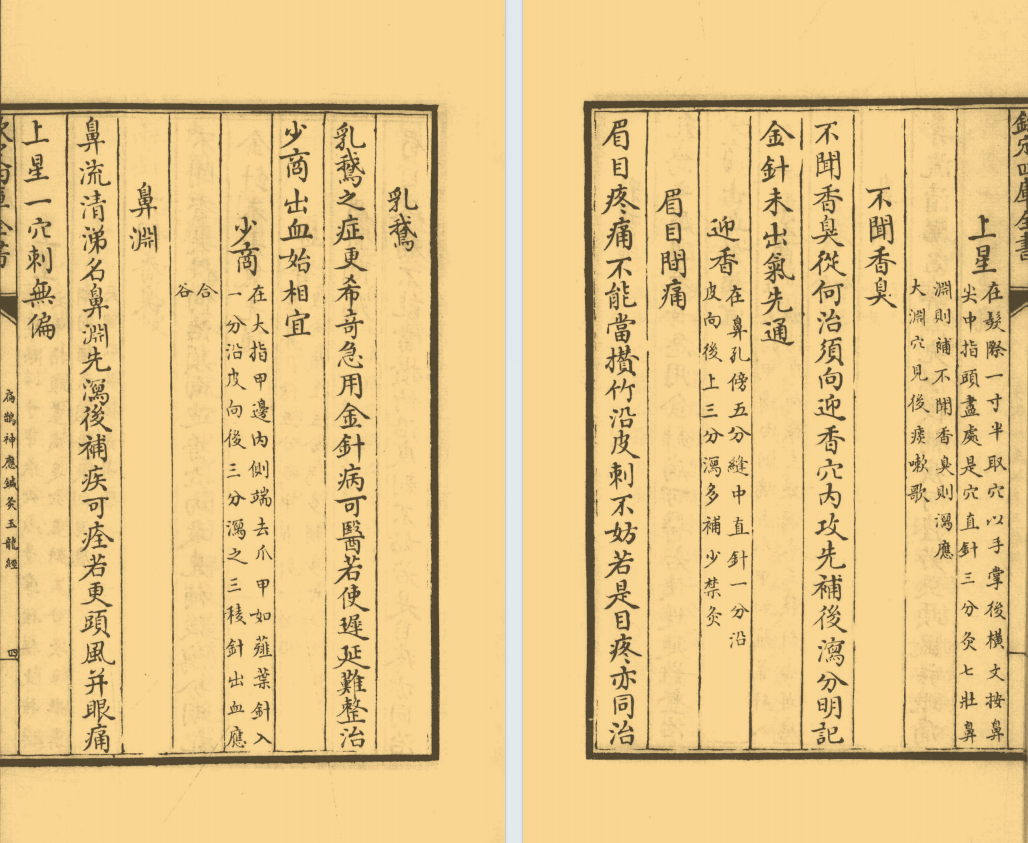 乳鵝
乳鵝之症更希奇急用金針病可醫若使遲延難整治
少商出血始相宜
少商
在大指甲邊內側端去爪甲如薤葉針入
一分沿皮向後三分瀉之三稜針出血應
合
谷
鼻淵
鼻流清涕名鼻淵先瀉後補疾可痊若更頭風并眼痛
上星一穴刺無偏
扁鵲神應鍼灸玉龍經
四
欽定四庫全書
上星
在髮際一寸半取穴以手掌後橫文按鼻
尖中指頭盡處是穴直針三分灸七壯鼻
淵則補不聞香臭則瀉應
大淵穴見後痰嗽歌
不聞香臭
不聞香臭從何治須向迎香穴內攻先補後瀉分明記
金針未出氣先通
迎香
在鼻孔傍五分縫中直針一分沿
皮向後上三分瀉多補少禁灸
眉目間痛
眉目疼痛不能當攢竹沿皮刺不妨若是目疼亦同治